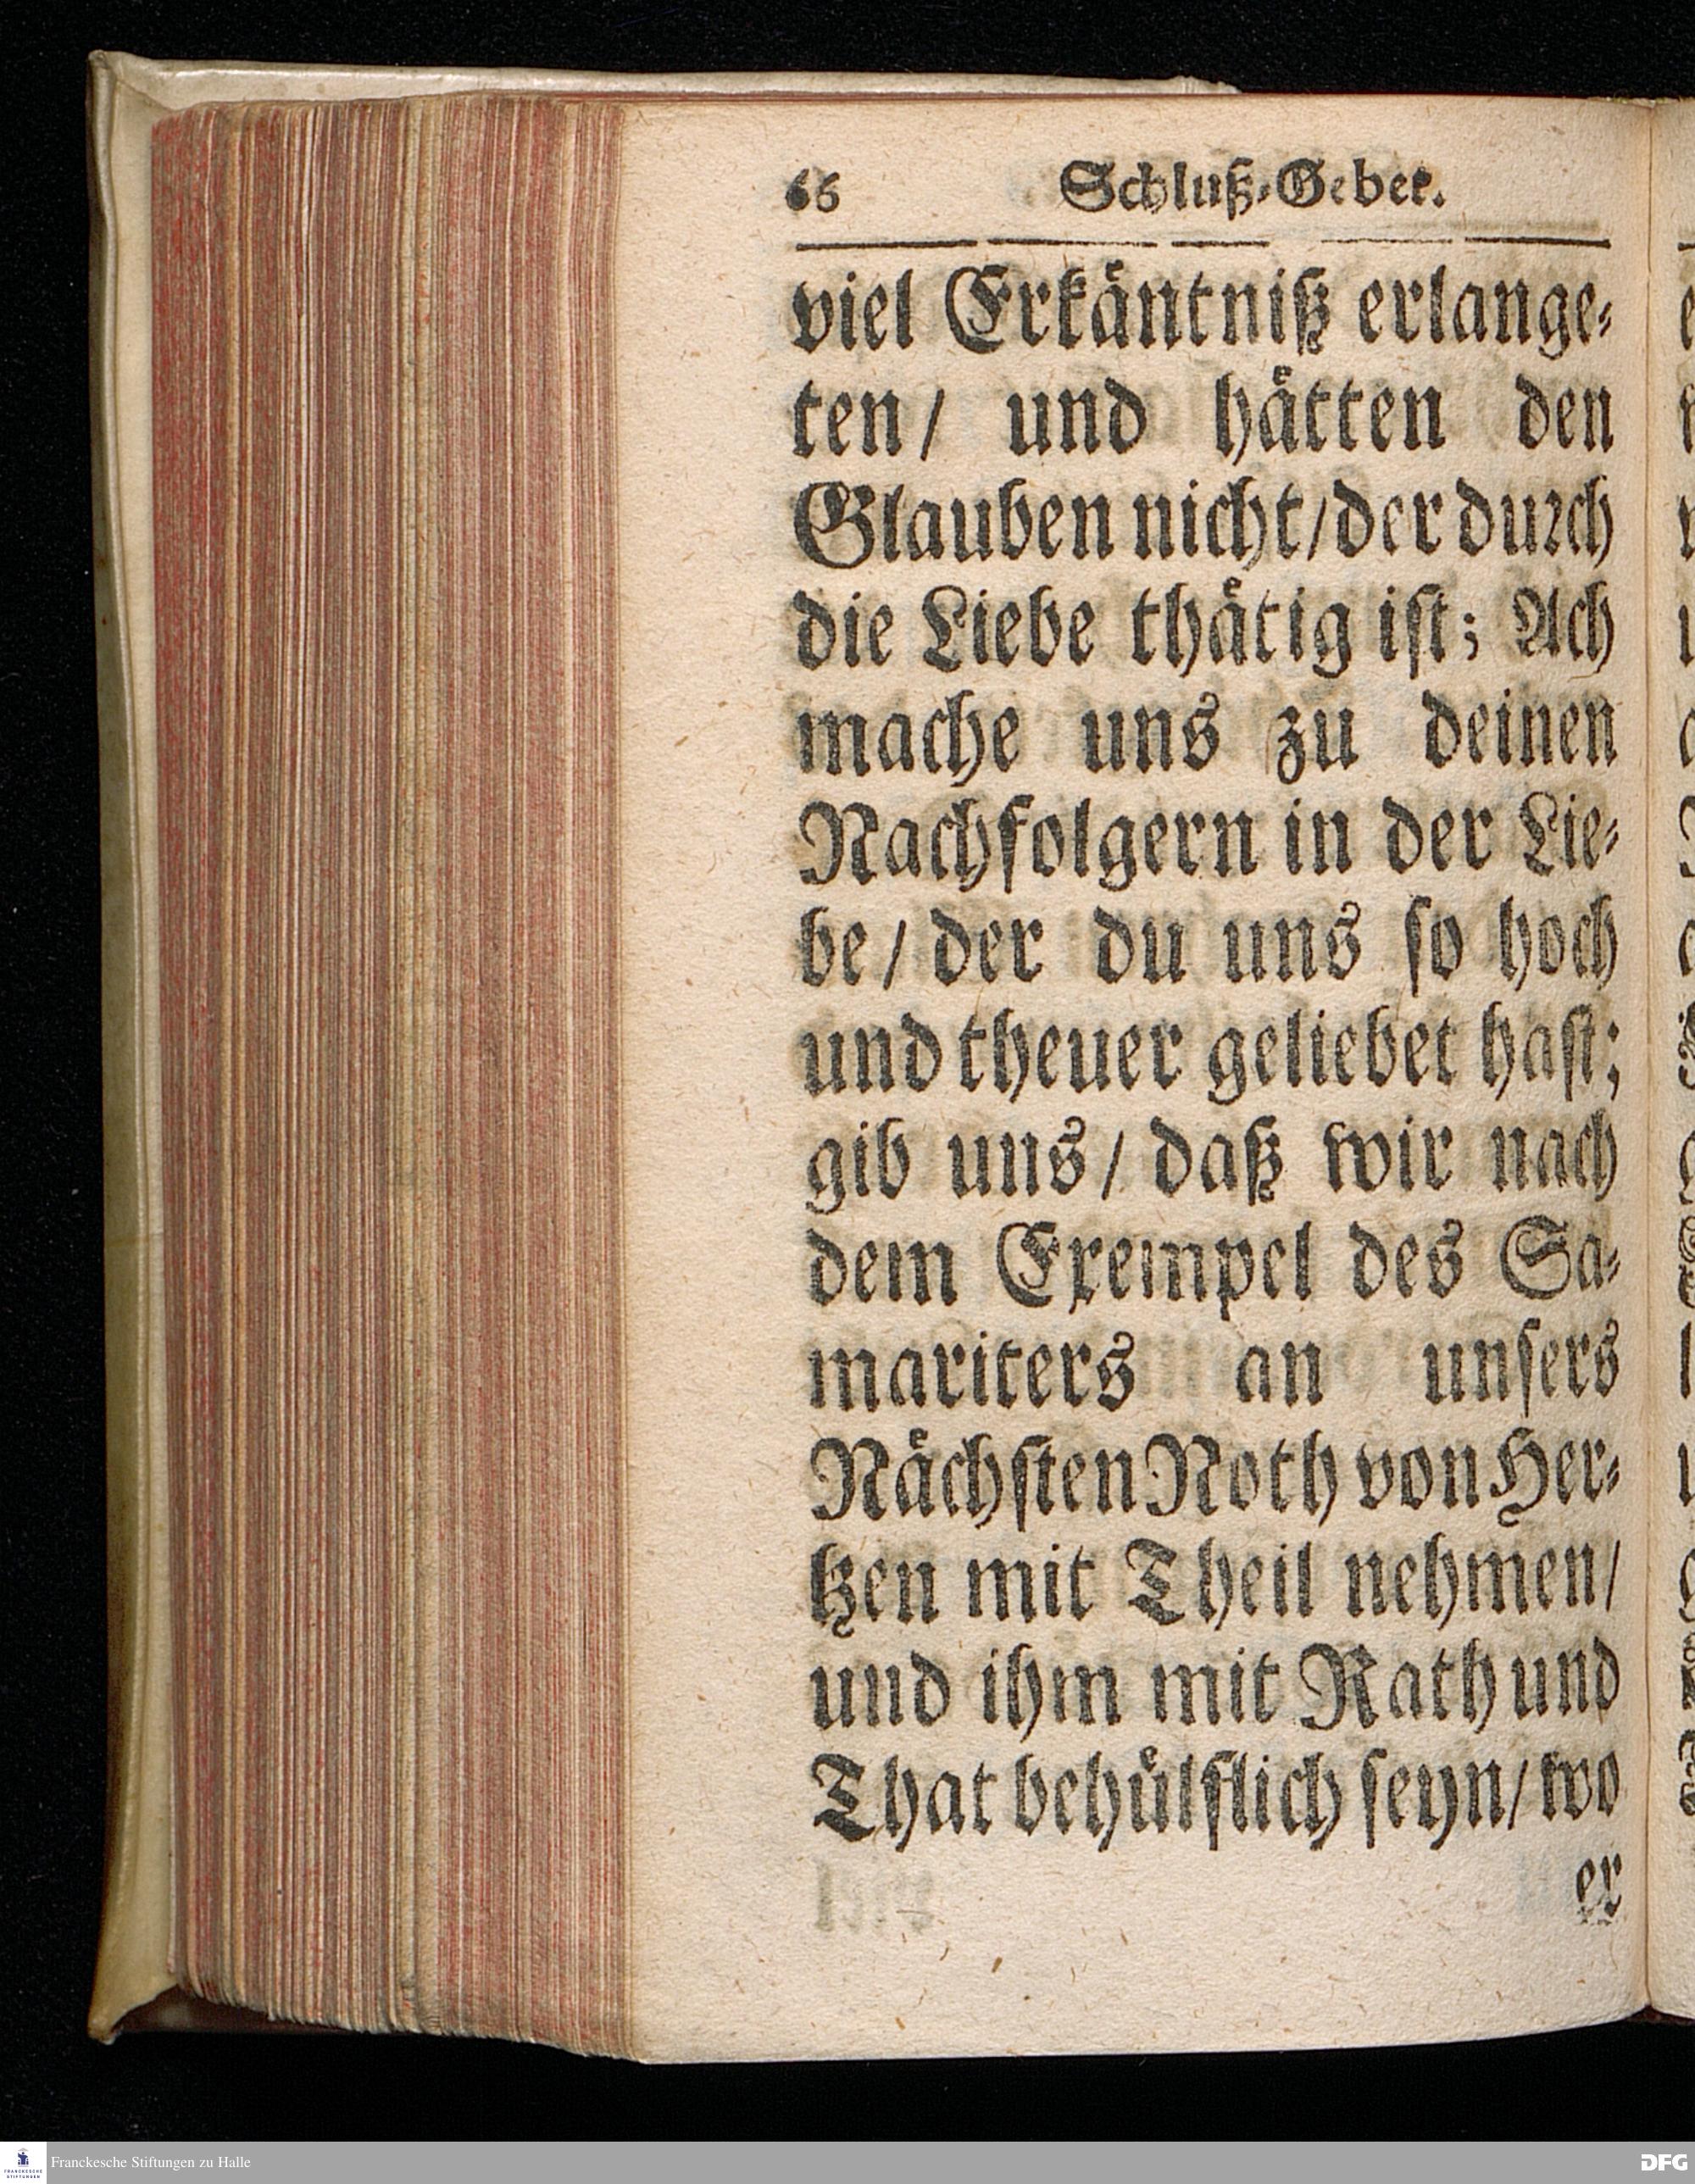 66 Schluß-Gebet.
viel Erkäntniß erlange-
ten/ und hätten den
Glauben nicht/der durch
die Liebe thätig ist; Ach
mache uns zu deinen
Nachfolgern in der Lie-
be/ der du uns so hoch
und theuer geliebet hast;
gib uns/ daß wir nach
dem Exempel des Sa-
mariters an unsers
Nächsten Noth von Her-
tzen mit Theil nehmen/
und ihm mit Rath und
That behülfflich seyn/ wo
er
FRANCKESCHE STIFTUNGEN
Franckesche Stiftungen zu Halle
DFG